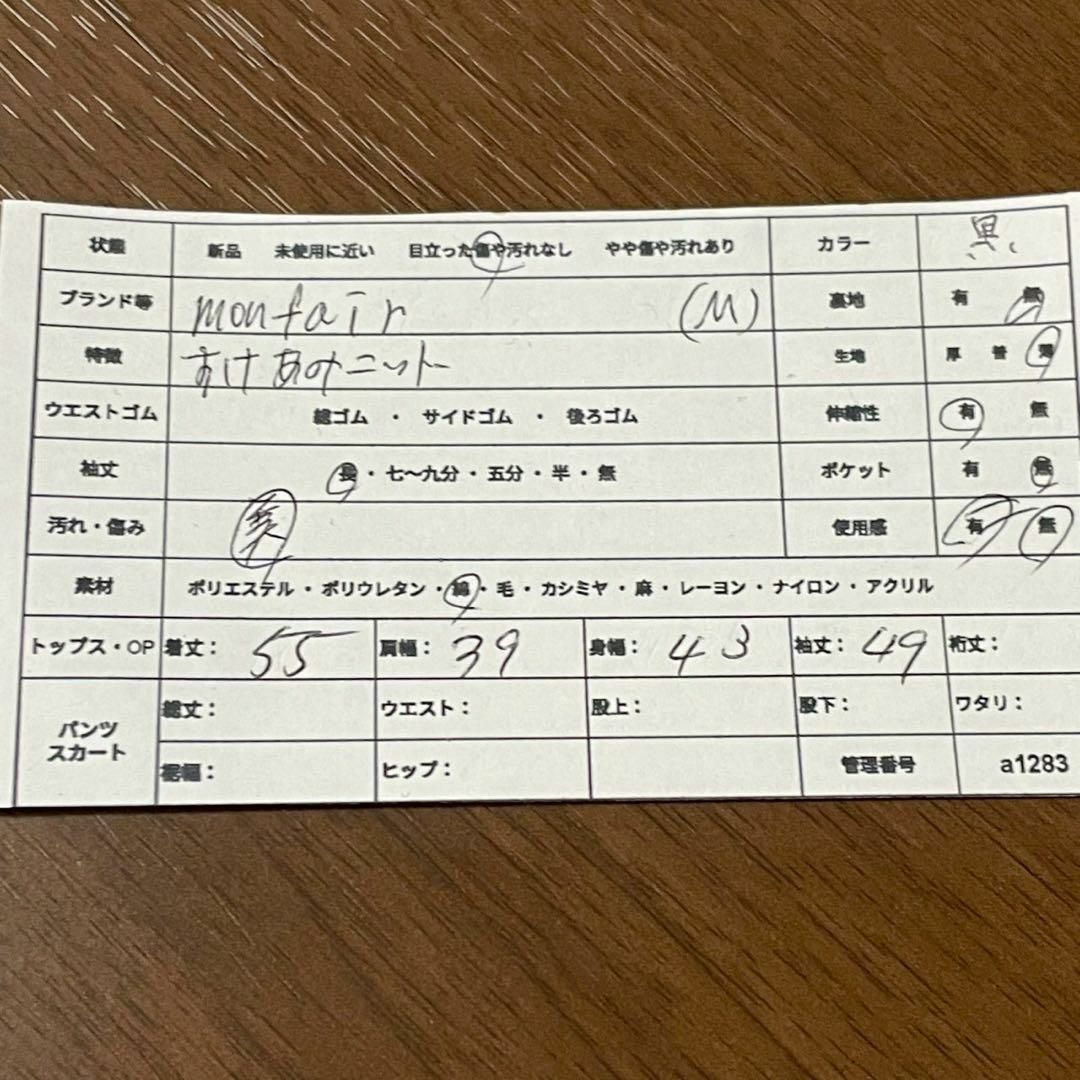 状態 新品 未使用に近い 目立った傷や汚れなし やや傷や汚れあり カラー 黒
ブランド等 monfair (M) 裏地 有 無
特徴 すけあみニット 生地 厚 普 薄
ウエストゴム 総ゴム ・ サイドゴム ・ 後ろゴム 伸縮性 有 無
袖丈 長・七〜九分・五分・半・無 ポケット 有 無
汚れ・傷み 使用感 有 無
素材 ポリエステル・ポリウレタン・綿・毛・カシミヤ・麻・レーヨン・ナイロン・アクリル
トップス・OP 着丈: 55 肩幅: 39 身幅: 43 袖丈: 49 裄丈:
パンツ
スカート
総丈: ウエスト: 股上: 股下: ワタリ:
裾幅: ヒップ: 管理番号 a1283